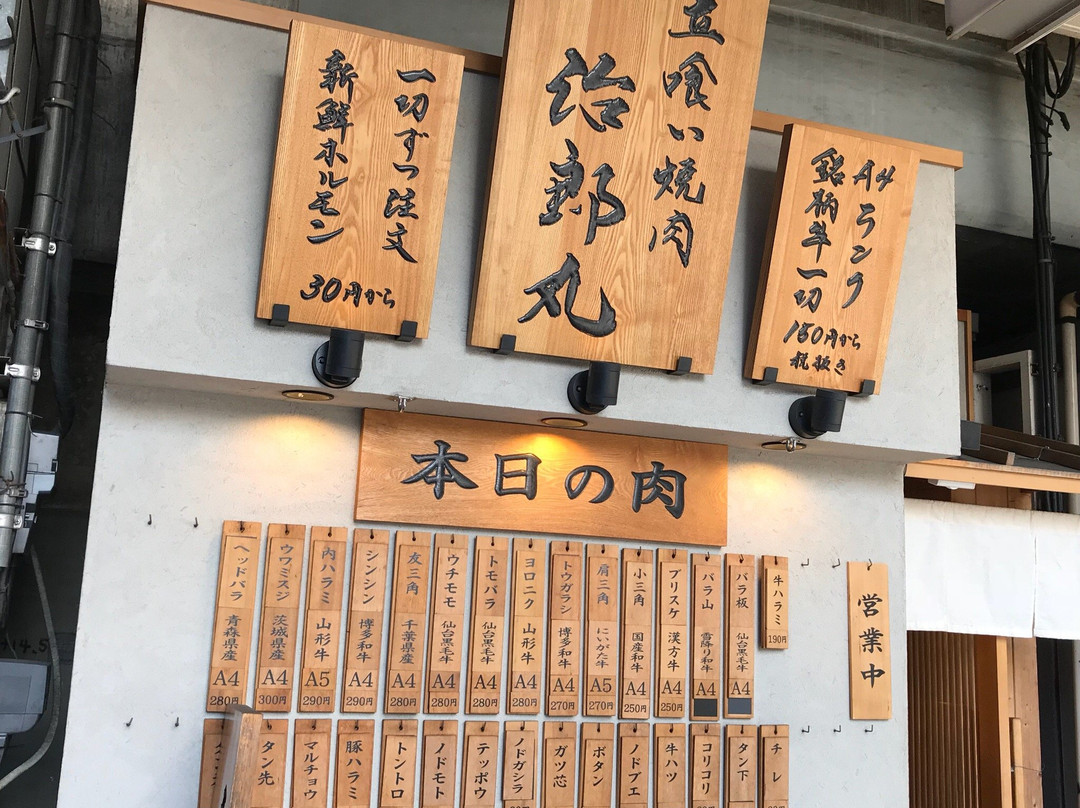 立喰い焼肉
治郎丸
A4ランク
銘柄牛一切
150円から
税抜き
一切ずつ注文
新鮮ホルモン
30円から
本日の肉
営業中
牛ハラミ 190円
バラ板 仙台黒毛牛 A4
バラ山 霜降り和牛 A4
ブリスケ 漢方牛 A4 250円
小三角 国産和牛 A4 250円
肩三角 にいがた牛 A5 270円
トウガラシ 博多和牛 A4 270円
ヨロニク 山形牛 A4 280円
トモバラ 仙台黒毛牛 A4 280円
ウチモモ 仙台黒毛牛 A4 280円
友三角 千葉県産 A4 280円
シンシン 博多和牛 A4 290円
内ハラミ 山形牛 A5 290円
ウワミスジ 茨城県産 A4 300円
ヘッドバラ 青森県産 A4 280円
チレ
タン下
コリコリ
牛ハツ
ノドブエ
ボタン
ガツ芯
ノドガシラ
テッポウ
ノドモト
トントロ
豚ハラミ
マルチョウ
タン先